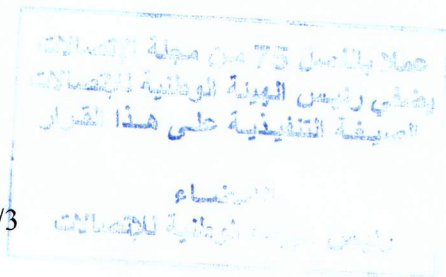 عملا بالفصل 75 من مجلة الإتصالات
يمضي رئيس الهيئة الوطنية للإتصالات
الصيغة التنفيذية على هذا القرار
الإمضاء
رئيس الهيئة الوطنية للإتصالات
/3